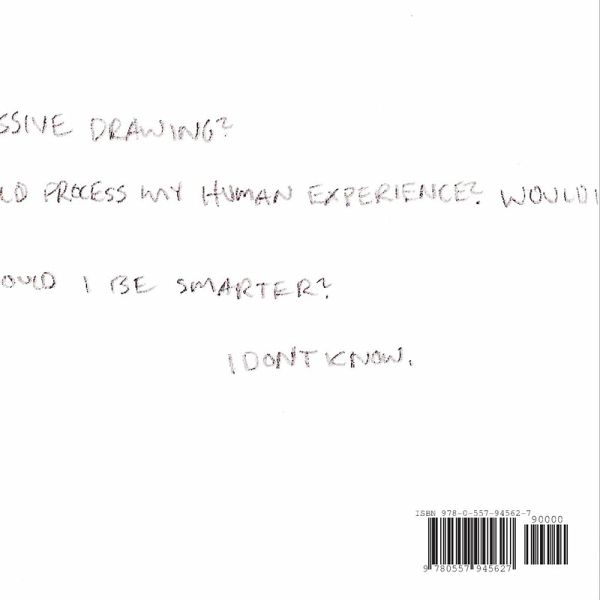 SSIVE DRAWING?
LD PROCESS MY HUMAN EXPERIENCE? WOULD I
OULD I BE SMARTER?
I DONT KNOW.
ISBN 978-0-557-94562-7
90000
9 780557 945627